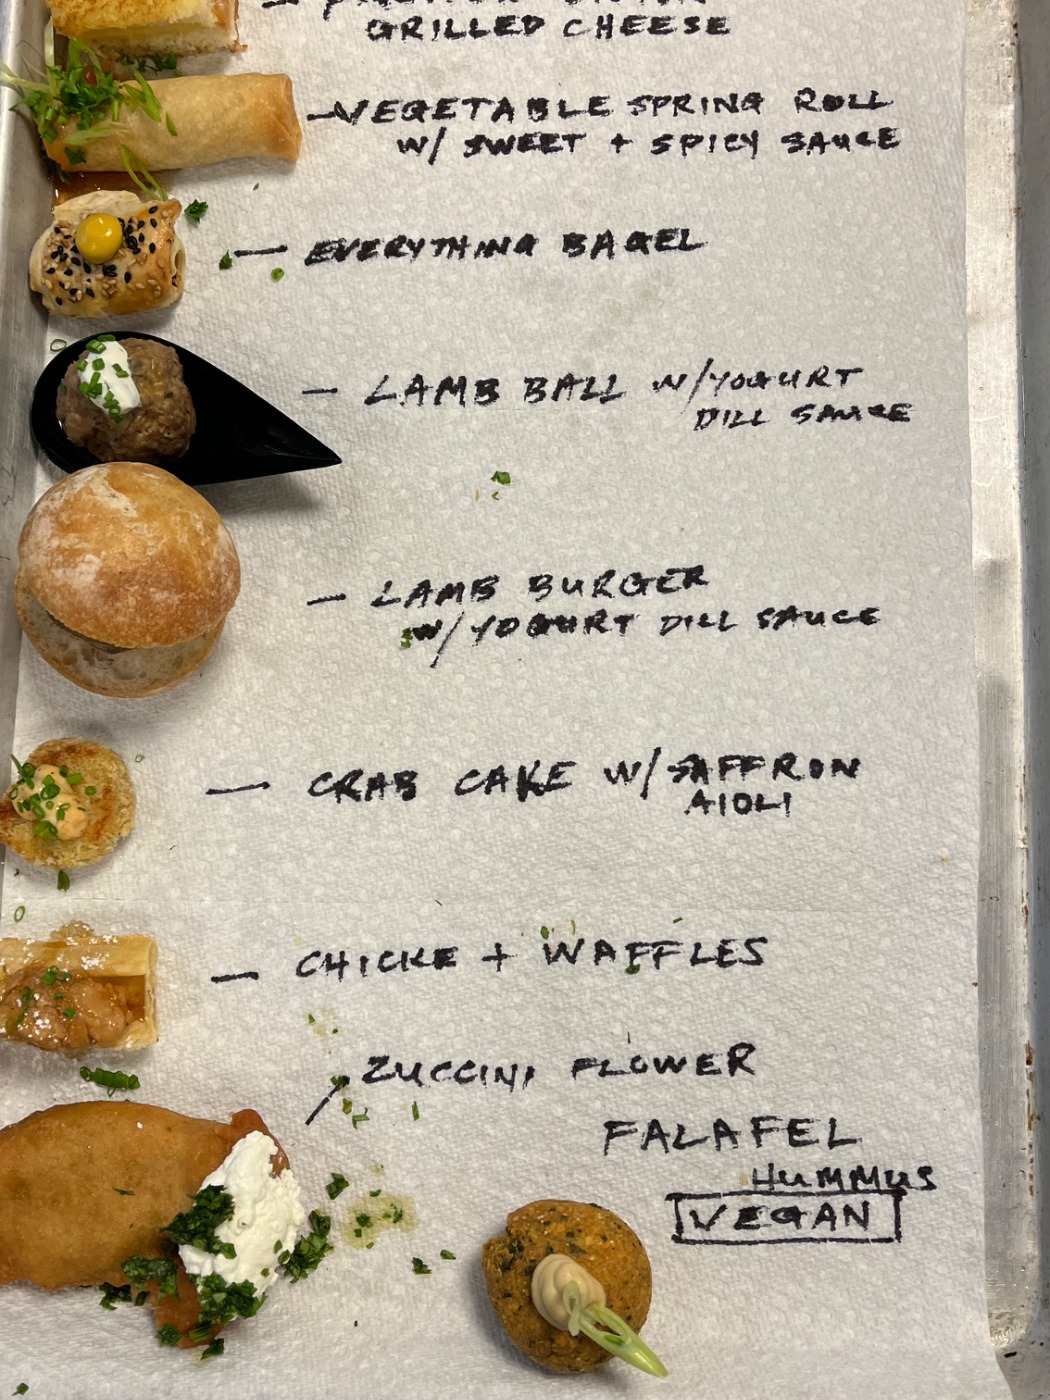 GRILLED CHEESE
VEGETABLE SPRING ROLL
W/ SWEET + SPICY SAUCE
EVERYTHING BAGEL
LAMB BALL W/YOGURT
DILL SAUCE
LAMB BURGER
W/YOGURT DILL SAUCE
CRAB CAKE W/SAFFRON
AIOLI
CHICKE + WAFFLES
ZUCCINI FLOWER
FALAFEL
HUMMUS
VEGAN